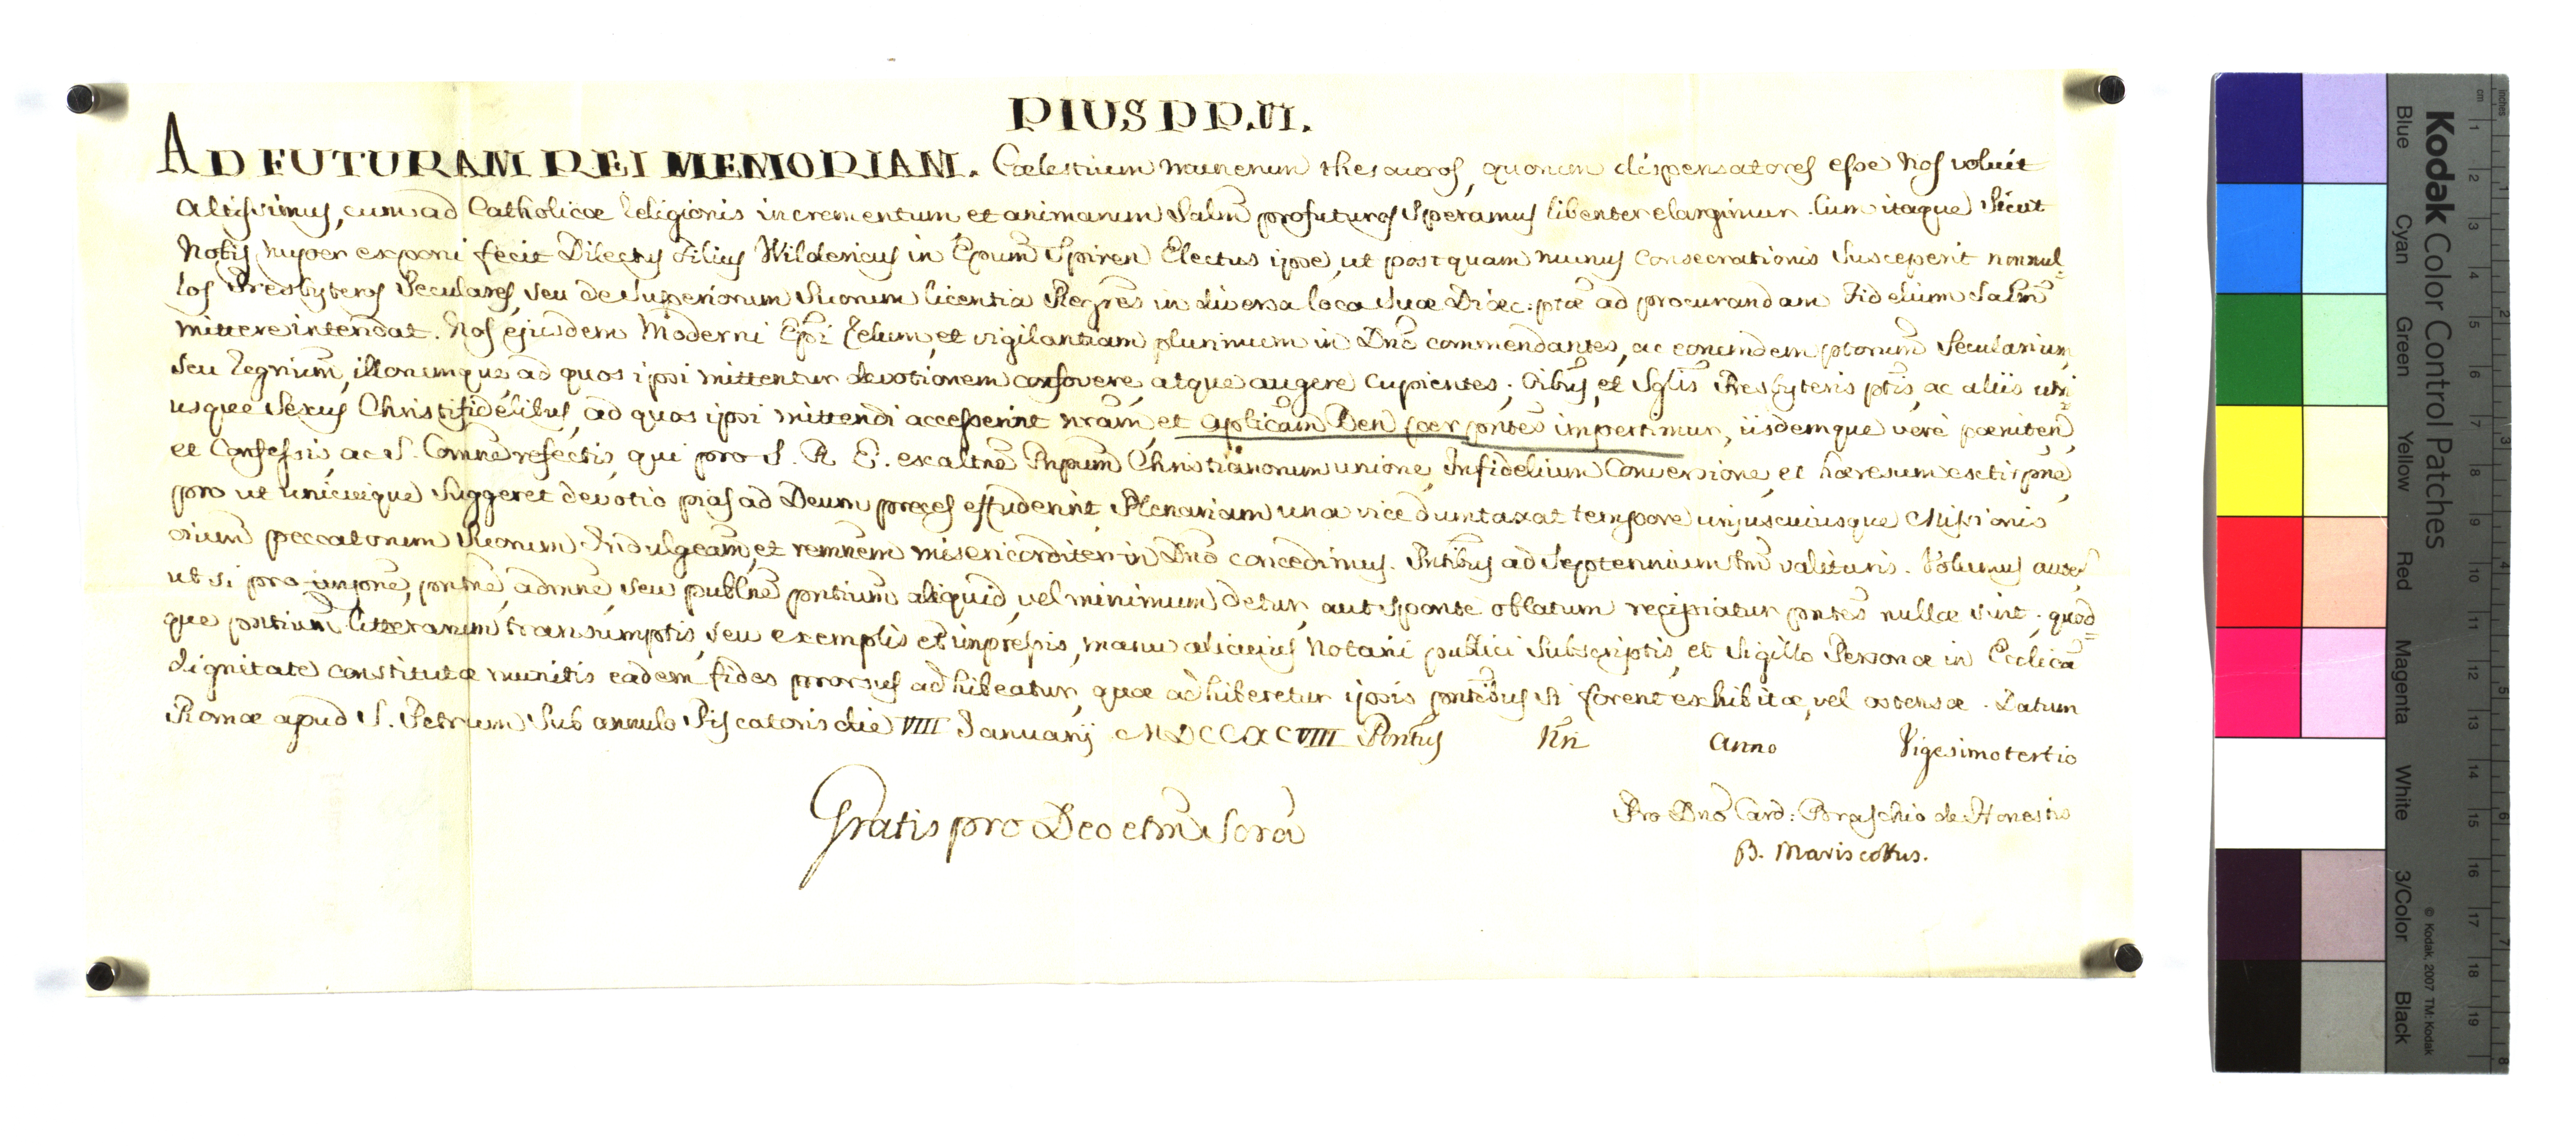 PIUS PP. VI.
AD FUTURAM REI MEMORIAM. Cœlestium munerum thesauros, quorum dispensatores esse Nos voluit
Altissimus, cum ad Catholicæ Religionis incrementum et animarum Salm̃ profuturos Speramus libenter elargimur. Cum itaque Sicut
Nobis nuper exponi fecit Dilectus Filius Wildericus in Ep̃um Spiren Electus ipse, ut postquam munus Consecrationis Susceperit nonnul=
los Presbyteros Seculares, seu de Superiorum Suorum licentia Reg̃res in diversa loca Suæ Diæc: ptæ ad procurandam Fidelium Salm̃
mittere intendat. Nos ejusdem Moderni Ep̃i Zelum, et vigilantiam plurimum in Dño commendantes, ac eorumdem pbrorum̃ Secularium,
Seu Regrium̃, illorumque ad quos ipsi mittentur devotionem confovere, atque augere cupientes; Oĩbus, et Sglis̃ Presbyteris ptis̃, ac aliis utri=
usque Sexus Christifidelibus, ad quos ipsi mittendi accesserint nr̃am, et Apl̃icam Ben̄ per pñtes impertimur, iisdemque verè pœniten̄,
et Confessis, ac S. Comne refectis, qui pro S. R. E. exaltñe Pñpum Christianorum unione, Infidelium Conversione, et hæresum extirpñe,
pro ut Unicuique Suggeret devotio pias ad Deum preces effuderint, Plenariam una vice dumtaxat tempore unjuscuiusque Missionis
oĩum peccatorum Suorum Indulgeãm, et remñem misericorditer in Dño concedimus. Pñtibus ad Septennium tm̃ valituris. Volumus autem̃
ut si pro impñe, pñtñe, admñe, seu publñe pñtium̃ aliquid, vel minimum detur, aut sponte oblatum recipiatur pñtes nullæ sint. quod=
que pñtium̃ litterarum transumptis, seu exemplis et impressis, manu alicuius Notarii publici Subscriptis, et Sigillo Personæ in Ecclica
dignitate constitutæ munitis eadem fides prorsus adhibeatur, quæ adhiberetur ipsis pñtibus si forent exhibitæ, vel ostensæ. Datum
Romæ apud S. Petrum Sub annulo Piscatoris die VIII Januarij MDCCXCVIII Pontus̃ Nri Anno Vigesimotertio
Gratis pro Deo et m̃ Scra
Pro Dño Card: Braschio de Honestis
B. Mariscottus.
Kodak Color Control Patches
Blue
Cyan
Green
Yellow
Red
Magenta
White
3/Color
Black
© Kodak, 2007 TM: Kodak
inches
cm
1
2
3
4
5
6
7
8
9
10
11
12
13
14
15
16
17
18
19
1
2
3
4
5
6
7
8